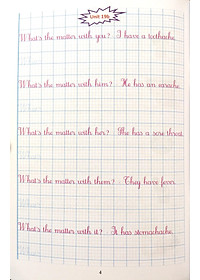 Unit 19b
What's the matter with you? I have a toothache.
What's the matter with him? He has an earache.
What's the matter with her? She has a sore throat.
What's the matter with them? They have fever.
What's the matter with it? It has stomachache.
4